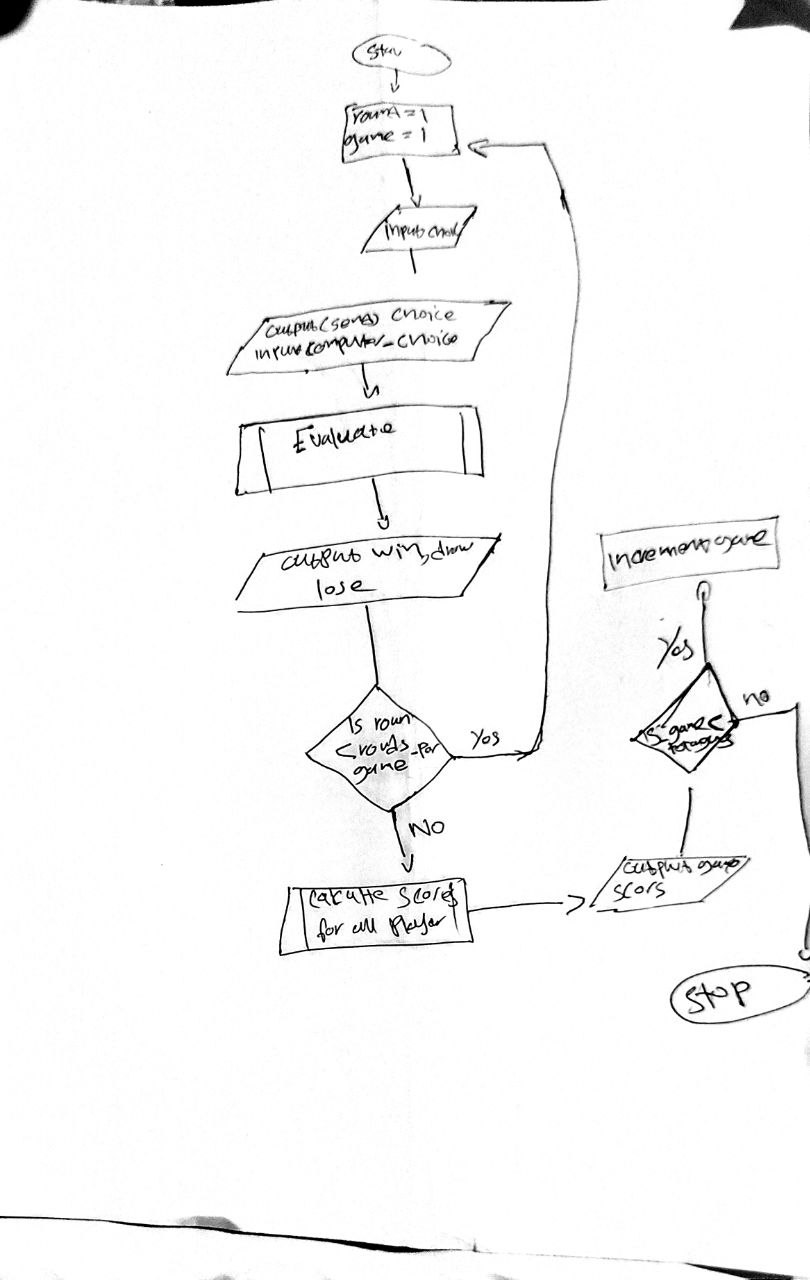 round = 1
game = 1
input
output (send) choice
input computer_choice
Evaluate
output win, draw
lose
Is roun
< rouds_per
game
Yes
NO
calculte scores
for all player
output game
scors
Is game <
no
Yes
increment game
Stop